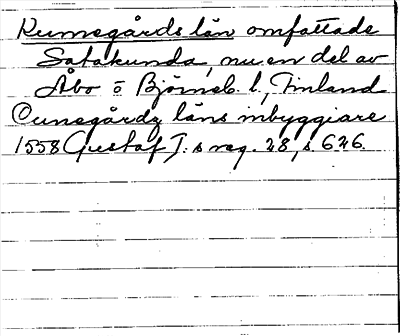 Kumogårds län omfattade
Satakunda, nu en del av
Åbo o Björneb. l., Finland
Cunsgårdz läns inbyggiare
1558 Gustaf I:s reg. 28, s. 626.